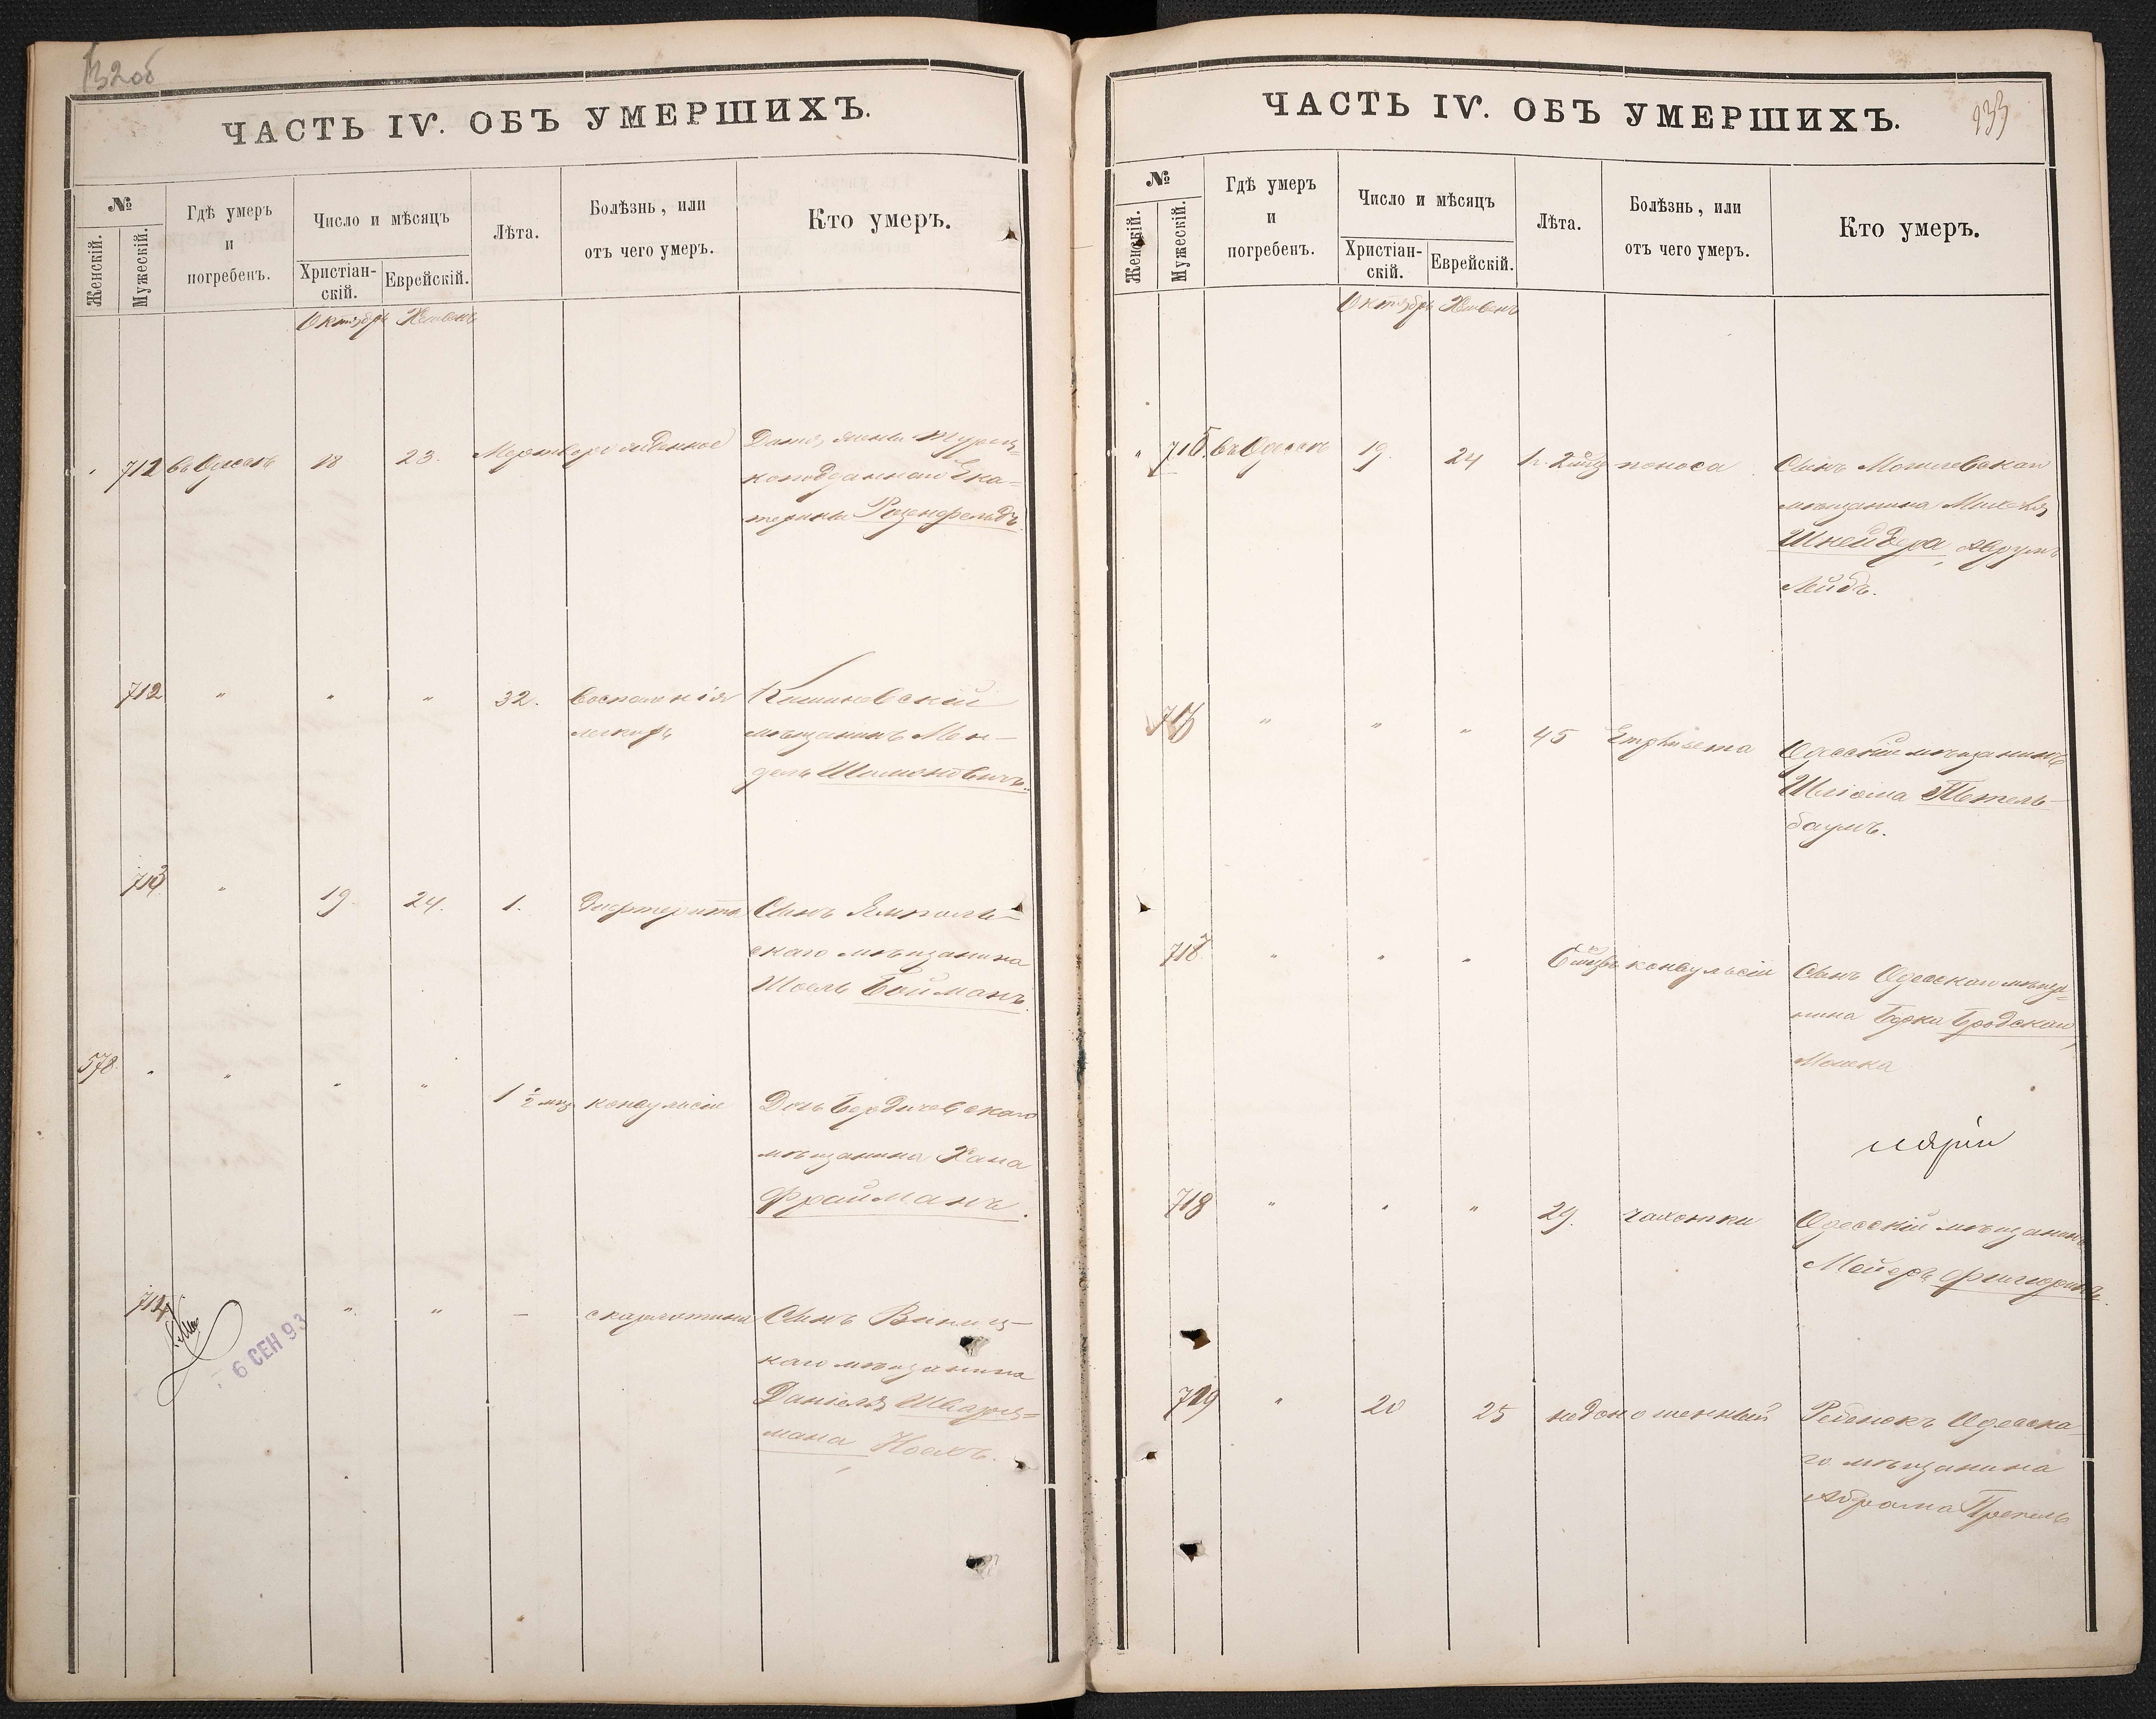 132об
ЧАСТЬ IV. ОБЪ УМЕРШИХЪ.
№
Женскій.
Мужескій.
Гдѣ умеръ
и
погребенъ.
Число и мѣсяцъ
Христіан-
скій.
Еврейскій.
Лѣта.
Болѣзнь, или
отъ чего умеръ.
Кто умеръ.
Октябрь
" 712 въ Одессѣ 18 23. Мертворожденное
коподданнаго Ека-
терины Розенфельдъ
712 " " " 32. Воспаленія Кишиневскій
легкихъ мѣщанинъ Мен-
дель Шимоновичъ.
713 " 19 24. 1. Дифтерита Сынъ Ямполь-
скаго мѣщанина
Шоель Бойманъ.
578 " " " " 1 1/2 мц конвульсіи Дочь Бердичевскаго
мѣщанина Хана
Фрайманъ.
714 " " — скарлатина Сынъ Винниц-
каго мѣщанина
Даніеля Шварц-
мана, Ноахъ.
6 СЕН 93
ЧАСТЬ IV. ОБЪ УМЕРШИХЪ.
133
№
Женскій.
Мужескій.
Гдѣ умеръ
и
погребенъ.
Число и мѣсяцъ
Христіан-
скій.
Еврейскій.
Лѣта.
Болѣзнь, или
отъ чего умеръ.
Кто умеръ.
Октябрь
" 715 въ Одессѣ 19 24 поноса Сынъ Могилевскаго
мѣщанина
Шнейдера, Аврумъ
Лейбъ.
716 " " " 45 Одесскій мѣщанинъ
Шлиома Тетель-
баумъ.
717 " " " конвульсіи Сынъ Одесскаго мѣща-
нина Берки Бродскаго,
Мошка
718 " " " 29. чахотки Одесскій мѣщанинъ
Мейеръ
719 " 20 25 недоношенный Ребенокъ Одесска
го мѣщанина
Абрама